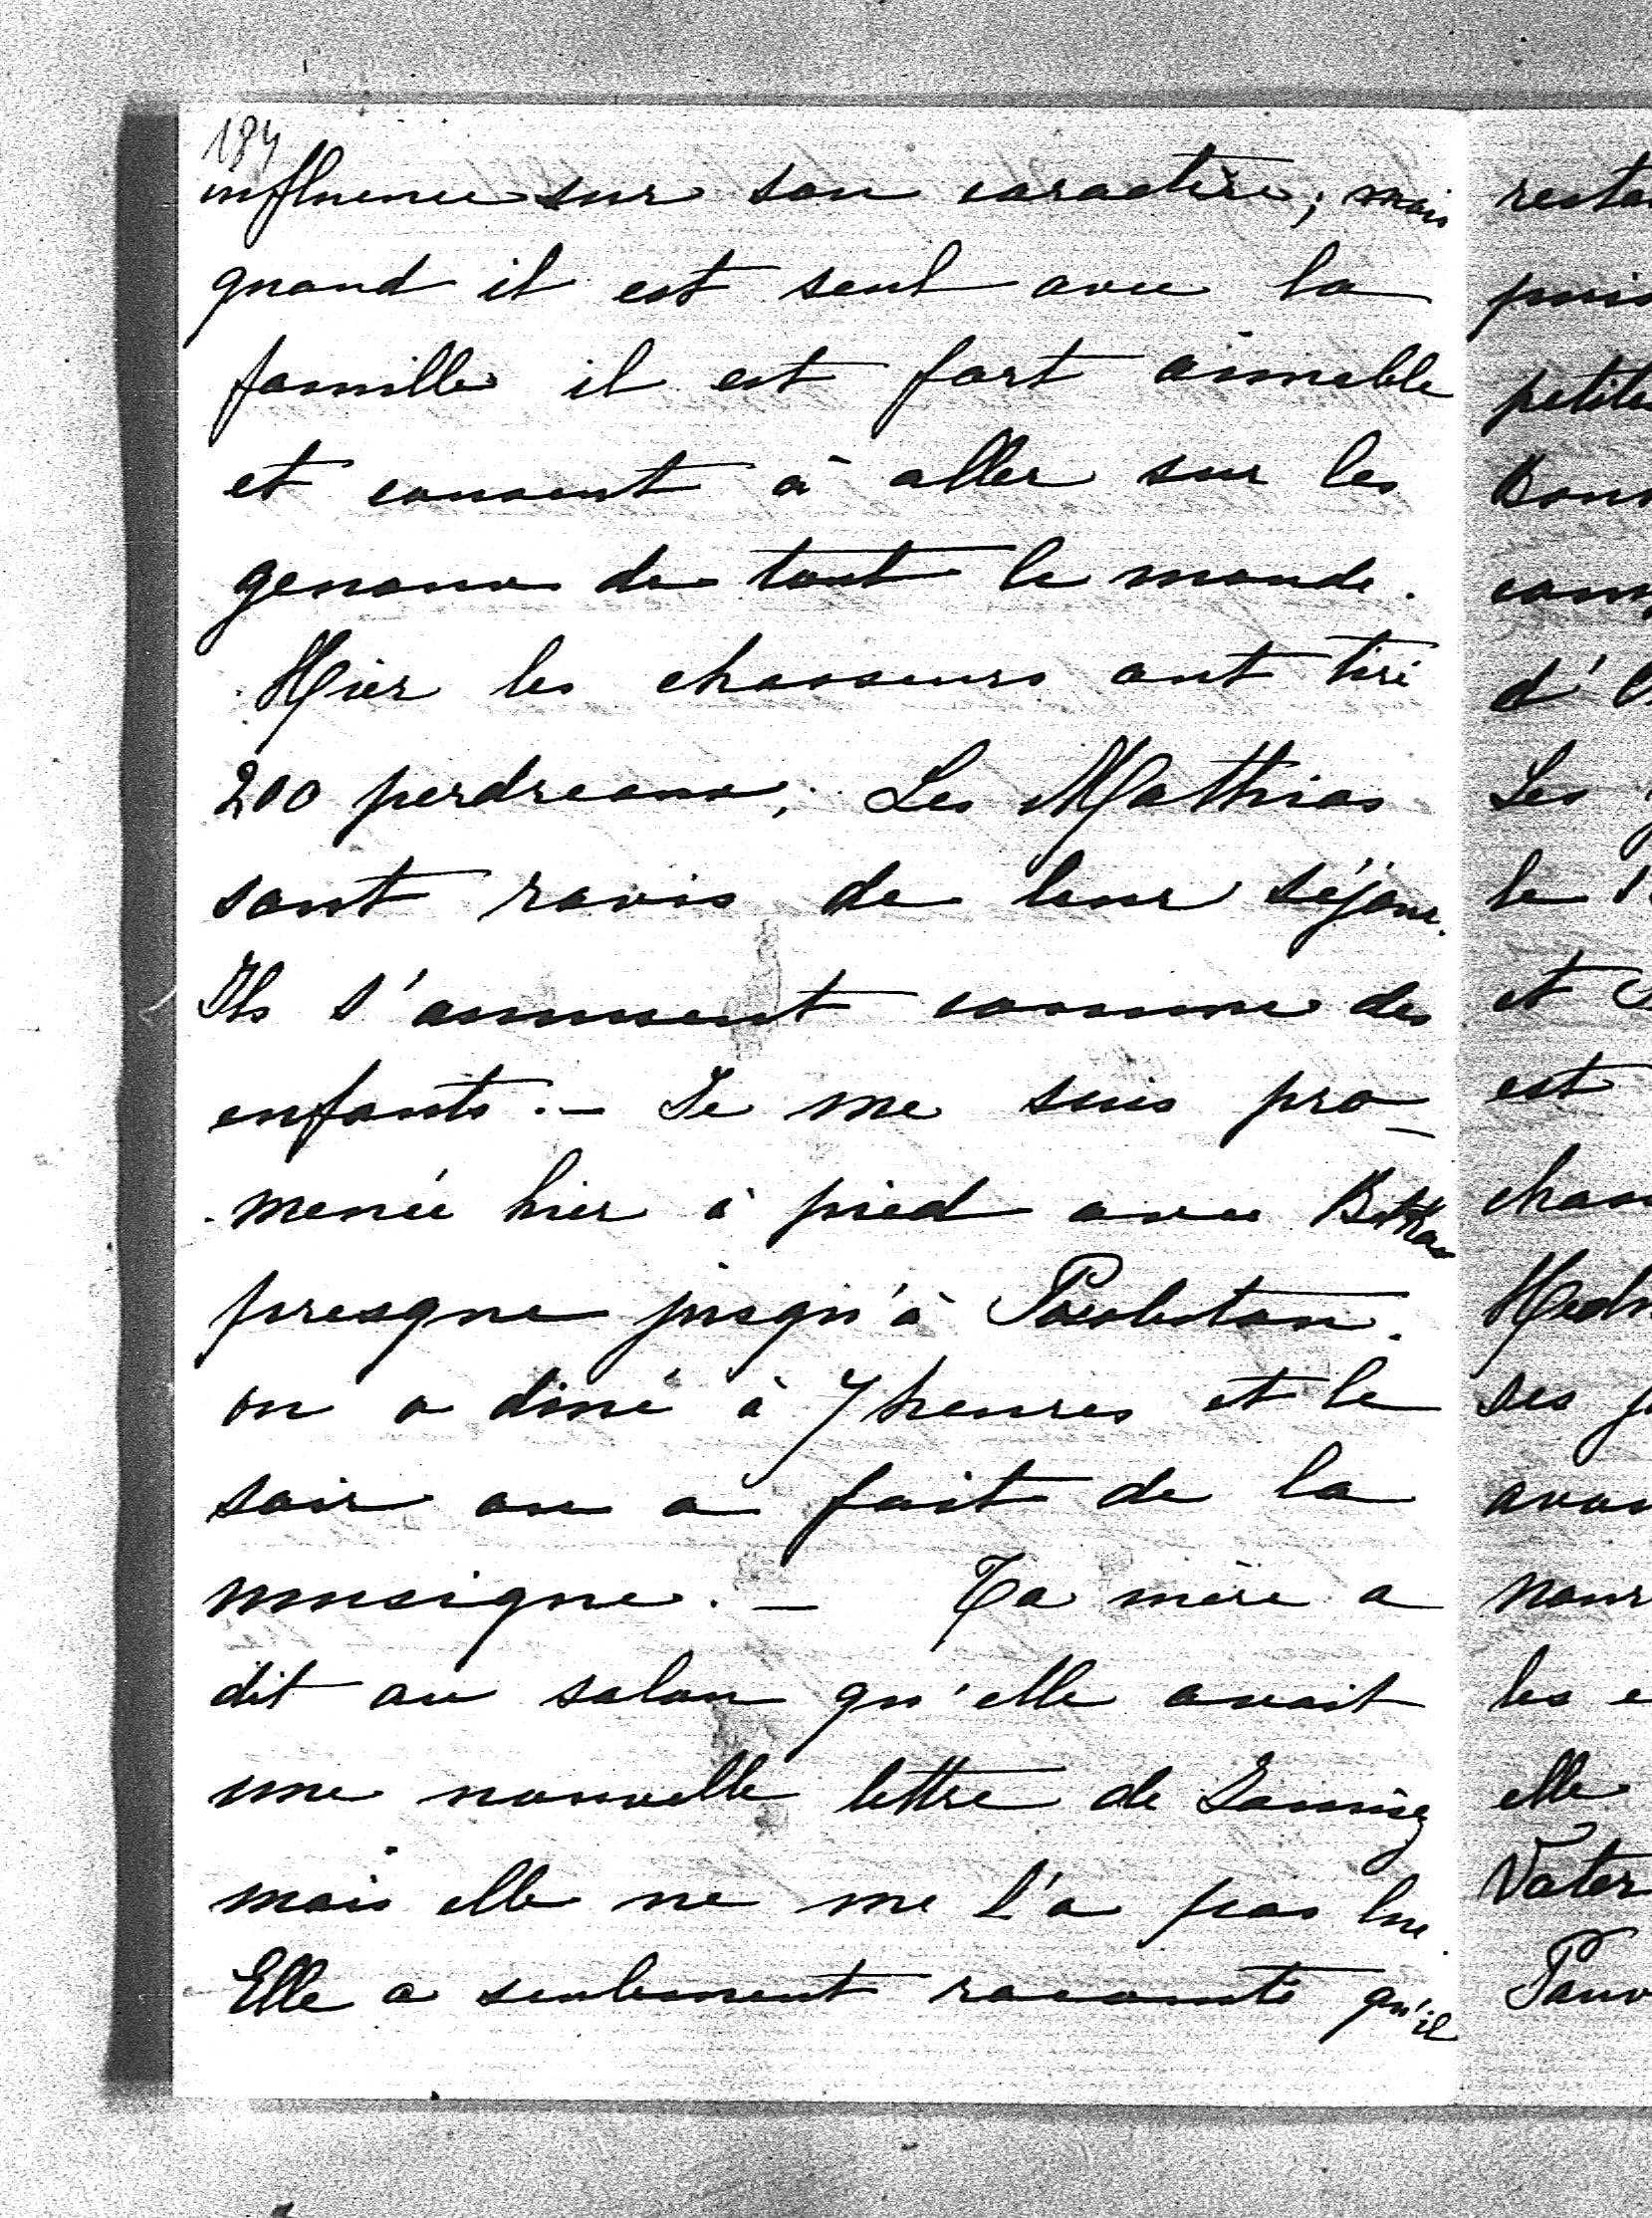 184
influence sur son caractère; mais
quand il est seul avec la
famille il est fort aimable
et consent à aller sur les
genoux de tout le monde.
Hier les chasseurs ont tiré
200 perdreaux; Les Mathias
sont ravis de leur séjour.
Ils s'amusent comme des
enfants. — Je me suis pro-
menée hier à pied avec
presque jusqu'à
on a diné à 7 heures et le
soir on a fait de la
musique. — Ta mère a
dit au salon qu'elle avait
une nouvelle lettre de
mais elle ne me l'a pas lue.
Elle a seulement raconté qu'il